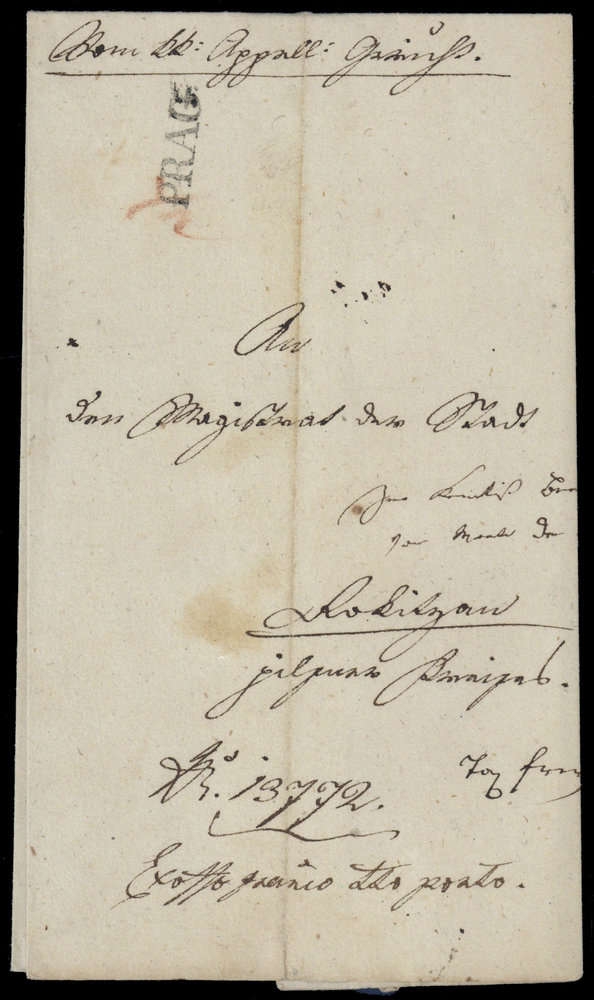 Vom kk: Appell: Gericht.
PRAG
An
den Magistrat der Stadt
Rokitzan
pilsner Kreises.
Nro. 13772.
Exoffo franco tto porto.